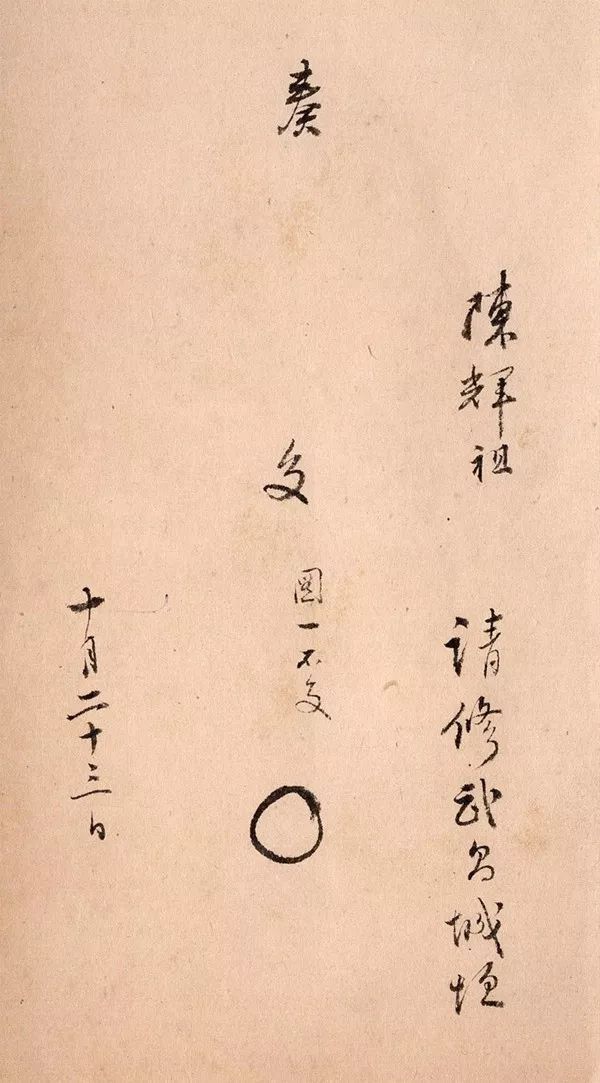 陳輝祖 請修武昌城垣
奏
交
圖一不交
十月二十三日